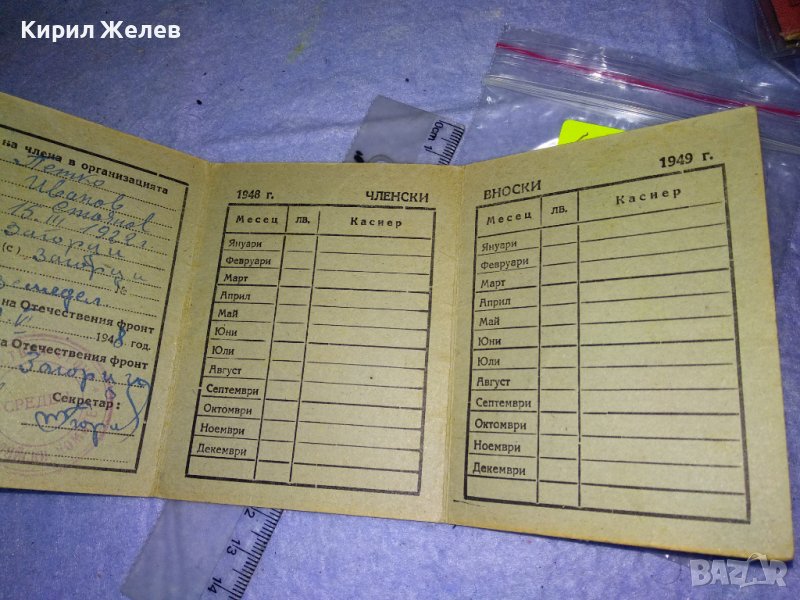 Кирил Желев
на члена в организацията
Петко
Иванов
Стоянов
15. III 1922 г.
Загорци
(с) Загорци
на Отечествения фронт
V 1948 год.
на Отечествения фронт
Загорци
Секретар:
СРЕД
1948 г. ЧЛЕНСКИ
Месец лв. Касиер
Януари
Февруари
Март
Април
Май
Юни
Юли
Август
Септември
Октомври
Ноември
Декември
ВНОСКИ 1949 г.
Месец лв. Касиер
Януари
Февруари
Март
Април
Май
Юни
Юли
Август
Септември
Октомври
Ноември
Декември
0cm 1
12
13
14
BAZAR